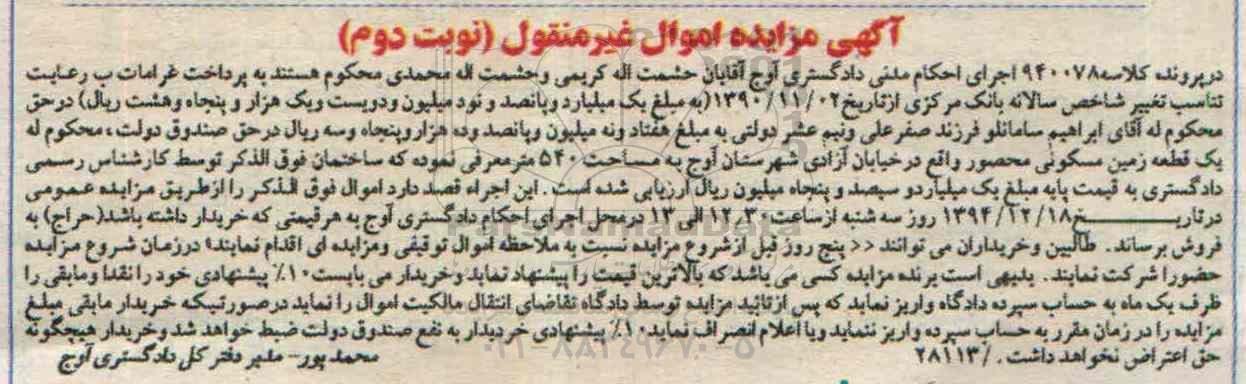 آگهی مزایده اموال غیرمنقول (نوبت دوم)
درپرونده کلاسه۹۴۰۰۷۸ اجرای احکام مدنی دادگستری آوج آقایان حشمت اله کریمی وحشمت اله محمدی محکوم هستند به پرداخت غرامات ب رعایت
تناسب تغییر شاخص سالانه بانک مرکزی ازتاریخ۱۳۹۰/۱۱/۰۲(به مبلغ یک میلیارد وپانصد و نود میلیون ودویست ویک هزار و پنجاه وهشت ریال) درحق
محکوم له آقای ابراهیم سامانلو فرزند صفرعلی ونیم عشر دولتی به مبلغ هفتاد ونه میلیون وپانصد وده هزار وپنجاه وسه ریال درحق صندوق دولت ، محکوم له
یک قطعه زمین مسکونی محصور واقع درخیابان آزادی شهرستان آوج به مساحت ۵۴۰ مترمعرفی نموده که ساختمان فوق الذکر توسط کارشناس رسمی
دادگستری به قیمت پایه مبلغ یک میلیارد و سیصد و پنجاه میلیون ریال ارزیابی شده است . این اجراء قصد دارد اموال فوق الذکر را ازطریق مزایده عمومی
درتاریخ۱۳۹۴/۱۲/۱۸ روز سه شنبه ازساعت۱۲،۳۰ الی ۱۳ درمحل اجرای احکام دادگستری آوج به هرقیمتی که خریدار داشته باشد(حراج) به
فروش برساند . طالبین وخریداران می توانند << پنج روز قبل ازشروع مزایده نسبت به ملاحظه اموال توقیفی ومزایده ای اقدام نمایند» درزمان شروع مزایده
حضورا شرکت نمایند . بدیهی است برنده مزایده کسی می باشد که بالاترین قیمت را پیشنهاد نماید وخریدار می بایست۱۰٪ پیشنهادی خود را نقدا ومابقی را
ظرف یک ماه به حساب سپرده دادگاه واریز نماید که پس ازتائید مزایده توسط دادگاه تقاضای انتقال مالکیت اموال را نماید درصورتیکه خریدار مابقی مبلغ
مزایده را در زمان مقرر به حساب سپرده واریز ننماید ویا اعلام انصراف نماید۱۰٪ پیشنهادی خردیدار به نفع صندوق دولت ضبط خواهد شد وخریدار هیچگونه
حق اعتراض نخواهد داشت . /۲۸۱۱۳
محمدپور- مدیر دفتر کل دادگستری آوج
ParsNamadData
۰۲۱-۸۸۳۴۹۶۷۰-۵